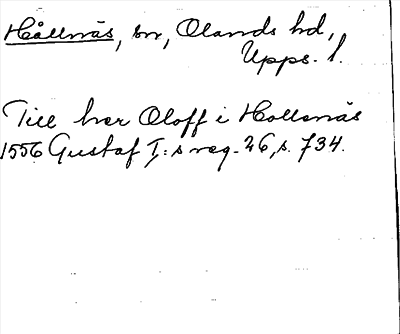 Hållnäs, sn, Olands hd,
Upps. l.
Till her Oloff i Hollenäs
1556 Gustaf I:s reg. 26, s. 734.